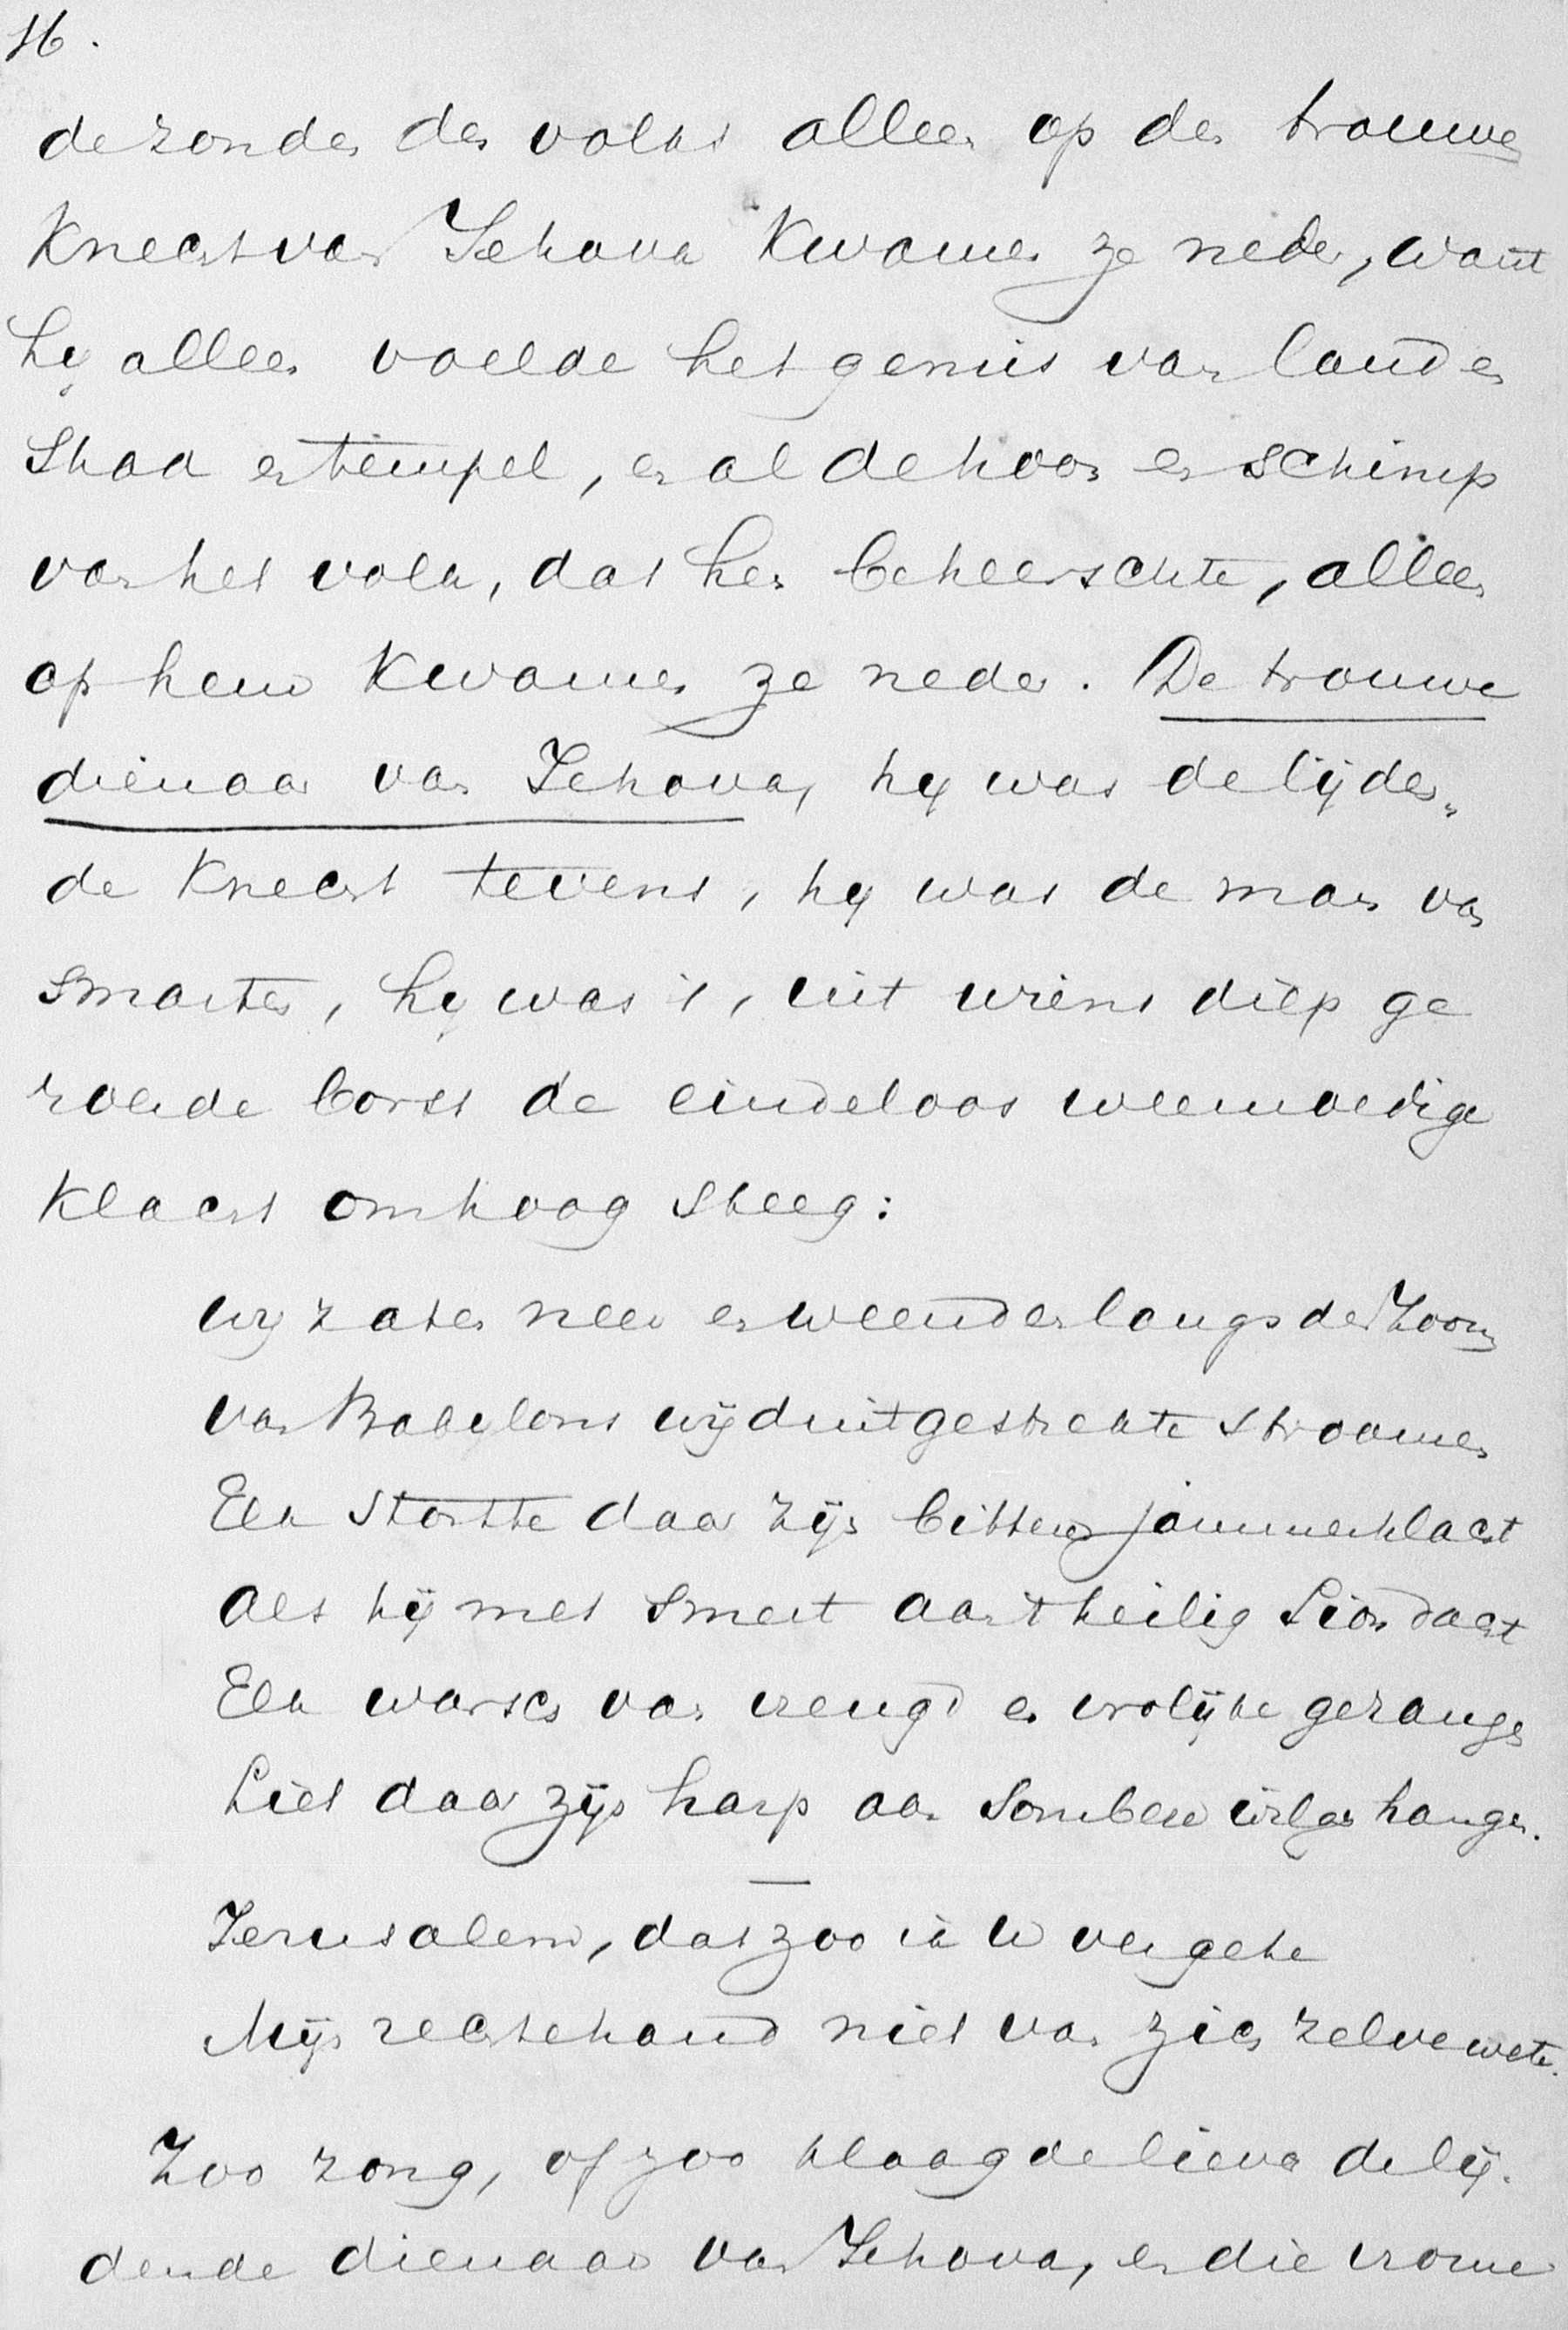 16.
de zonden des volks alleen op den trouwen
Knecht van Jehova kwamen ze neder, want
hy alleen voelde het gemis van land en
Stad en tempel, en al de hoon en schimp
van het volk, dat hen beheerschte, alleen
op hem kwamen ze neder. De trouwe
dienaar van Jehova, hy was de lijden-
de Knecht tevens, hy was de man van
smarten, hy was 't, uit wiens diep ge
wonde borst de eindeloos weemoedige
Klacht omhoog steeg:
Wy zaten neer en weenden langs de Zoomen
van Babylons wijduitgestrekte stroomen
Elk stortte daar zijn bittere jammerklacht
Als hij met smert aan 't heilig Sion dacht
Elk warsch van vreugd en vrolijke gezangen
Liet daar zijn harp aan sombere wilgen hangen.
Jerusalem, dat zoo ik U vergete
Mijn rechtehand niet van zich zelve wete.
Zoo zong, of zoo klaagde lieve de lij-
dende dienaar van Jehova, en die vrome